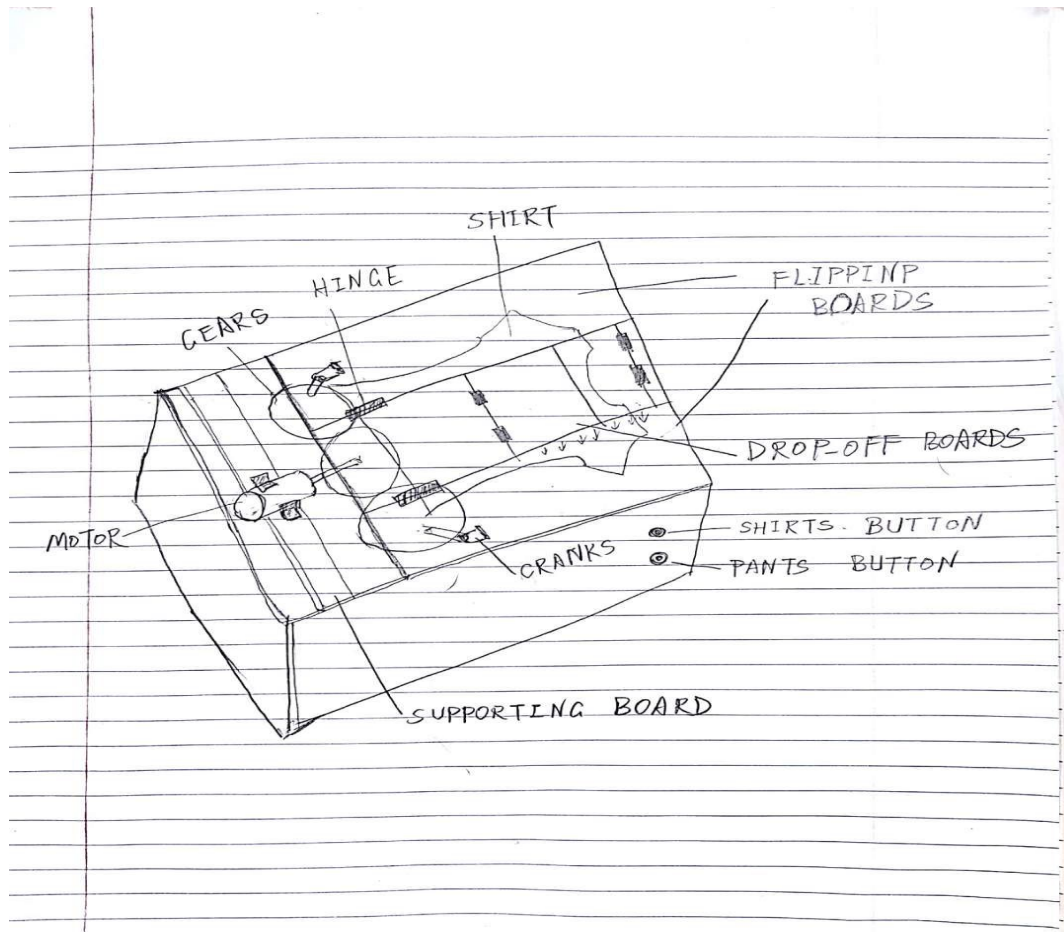 SHIRT
HINGE
GEARS
FLIPPINP
BOARDS
DROP-OFF BOARDS
MOTOR
SHIRTS. BUTTON
CRANKS
PANTS BUTTON
SUPPORTING BOARD